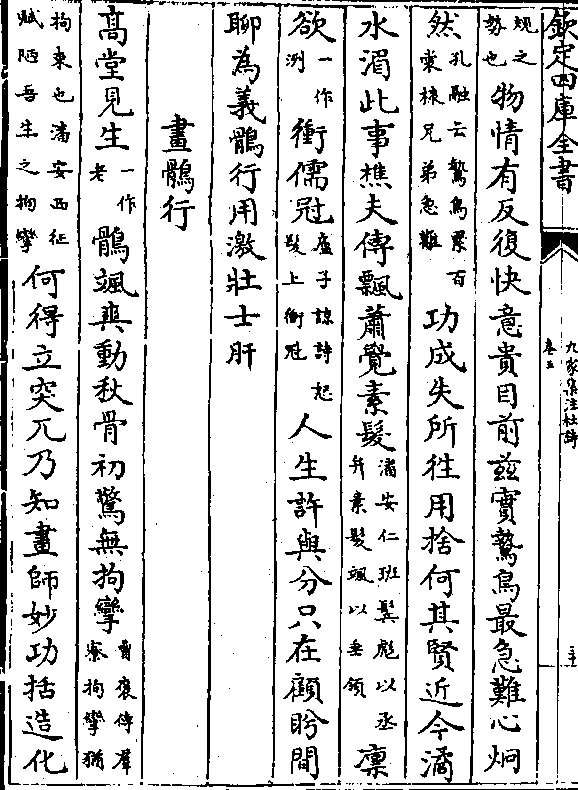 欽定四庫全書
九家集注杜詩
卷
規之勢也物情有反復快意貴目前茲實鷙鳥最急難心炯
然孔融云鷙鳥累百棠棣兄弟急難功成失所往用捨何其賢近今潏
水湄此事樵夫傳飄蕭覺素髮潘安仁班鬢彪以丞弁素髮颯以垂領凜
欲一作冽衝儒冠盧子諒詩怒髮上衝冠人生許與分只在顧盼間
聊為義鶻行用激壯士肝
畫鶻行
髙堂見生一作老鶻颯爽動秋骨初驚無拘攣曹褒傳羣寮拘攣猶
拘束也潘安西征賦陋吾生之拘攣何得立突兀乃知畫師妙功括造化